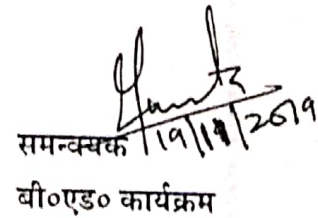 समन्वयक 19/11/2019
बी०एड० कार्यक्रम